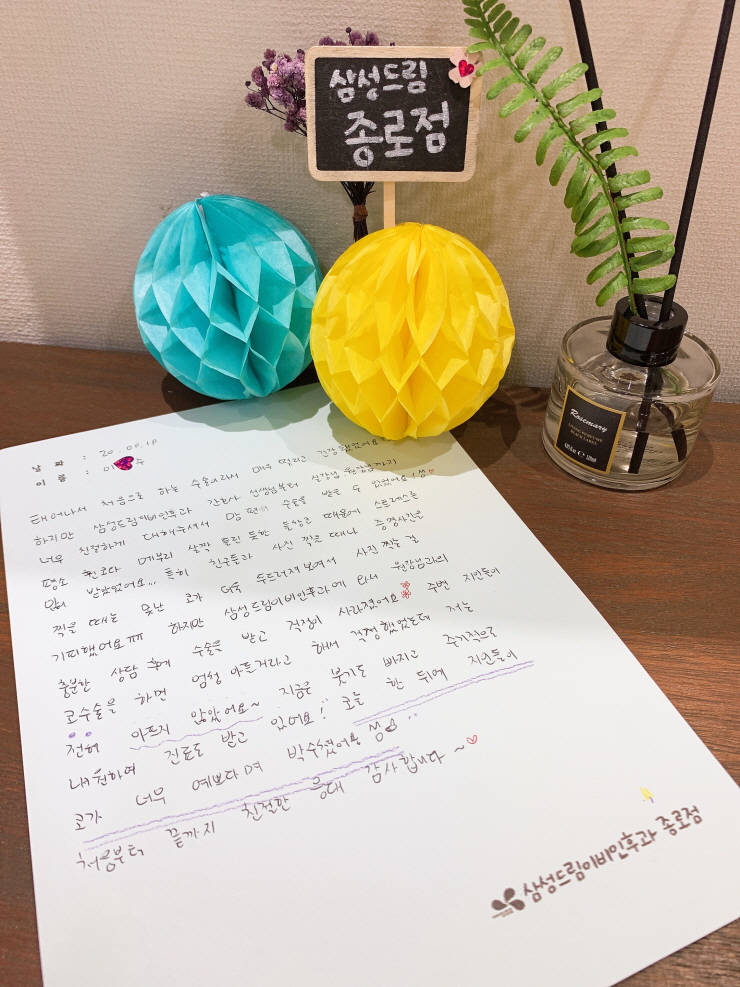 삼성드림
종로점
Rosemary
날짜 : 20.09.18
이름 : 이 수
태어나서 처음으로 하는 수술이라서 매우 떨리고 긴장했었어요
하지만 삼성드림이비인후과 간호사 선생님부터 실장님 원장님까지
너무 친절하게 대해주셔서 맘 편히 수술을 받을 수 있었어요!
평소 휜코와 메부리 살짝 들린 듯한 들창코 때문에 스트레스를
많이 받았었어요... 특히 친구들과 사진 찍을 때나 증명사진을
찍을 때는 못난 코가 더욱 두드러져보여서 사진 찍는 걸
기피했어요ㅠㅠ 하지만 삼성드림이비인후과에 와서 원장님과의
충분한 상담 후에 수술을 받고 걱정이 사라졌어요! 주변 지인들이
코수술을 하면 엄청 아프거라고 해서 걱정했었는데 저는
전혀 아프지 않았어요~ 지금은 붓기도 빠지고 주기적으로
내원하여 진료도 받고 있어요! 오늘 한 뒤에 지인들이
코가 너무 예쁘다며 박수쳤어용
처음부터 끝까지 친절한 응대 감사합니다~
삼성드림이비인후과 종로점